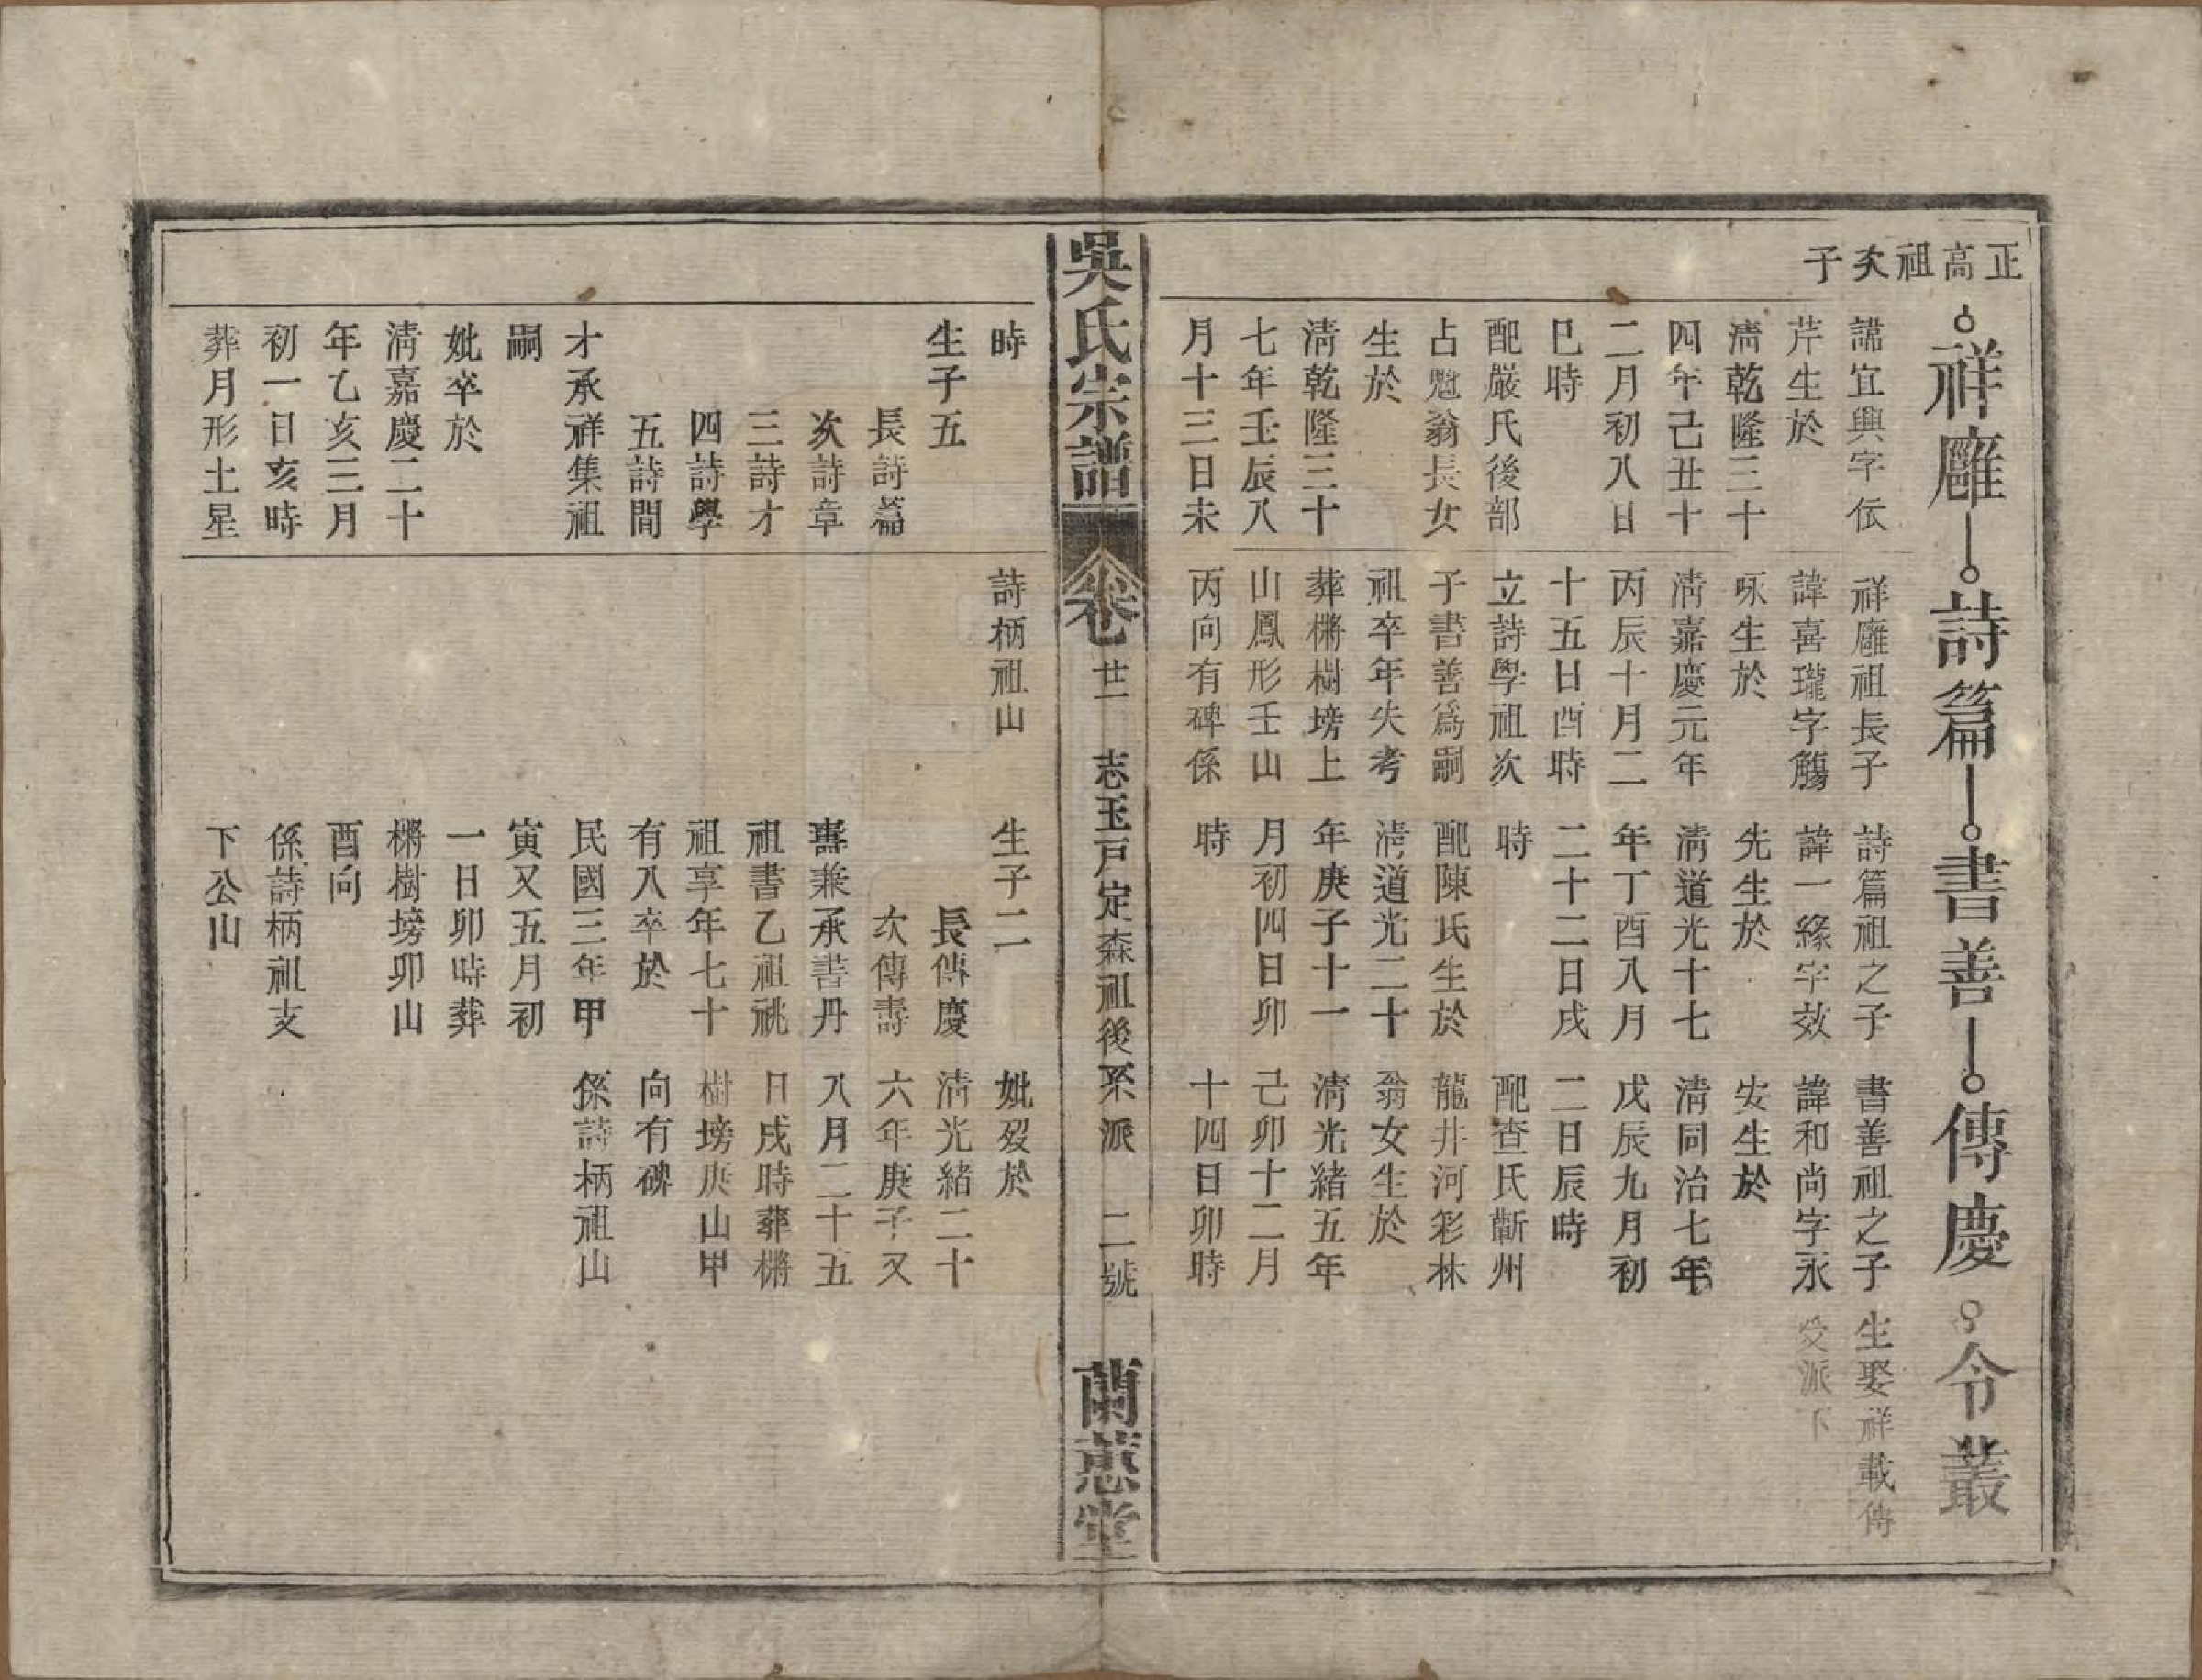 正高祖亥子
祥廱 詩篇 書善 傳慶 令叢
諱宜興字伝
芹生於
淸乾隆三十
四年己丑十
二月初八日
巳時
配嚴氏後部
占魁翁長女
生於
淸乾隆三十
七年壬辰八
月十三日未
祥廱祖長子
諱喜瓏字觴
咏生於
淸嘉慶元年
丙辰十月二
十五日酉時
立詩學祖次
子書善爲嗣
祖卒年失考
葬樹塝上
山鳳形壬山
丙向有碑係
詩篇祖之子
諱一緣字效
先生於
淸道光十七
年丁酉八月
二十二日戌
時
配陳氏生於
淸道光二十
年庚子十一
月初四日卯
時
書善祖之子
諱和尚字永
安生於
淸同治七年
戊辰九月初
二日辰時
配查氏蘄州
龍井河彩林
翁女生於
淸光緒五年
己卯十二月
十四日卯時
生娶祥載傳
受派下
吳氏宗譜 卷七 廿一 志玉戸定森祖後系派 二號 蘭蕙堂
時
生子五
長詩篇
次詩章
三詩才
四詩學
五詩間
才承祥集祖
嗣
妣卒於
淸嘉慶二十
年乙亥三月
初一日亥時
葬月形土星
詩柄祖山
生子二
長傳慶
次傳壽
壽兼承書丹
祖書乙祖祧
祖享年七十
有八卒於
民國三年甲
寅又五月初
一日卯時葬
樹塝卯山
酉向
係詩柄祖支
下公山
妣歿於
淸光緒二十
六年庚子又
八月二十五
日戌時葬
樹塝庚山甲
向有碑
係詩柄祖山